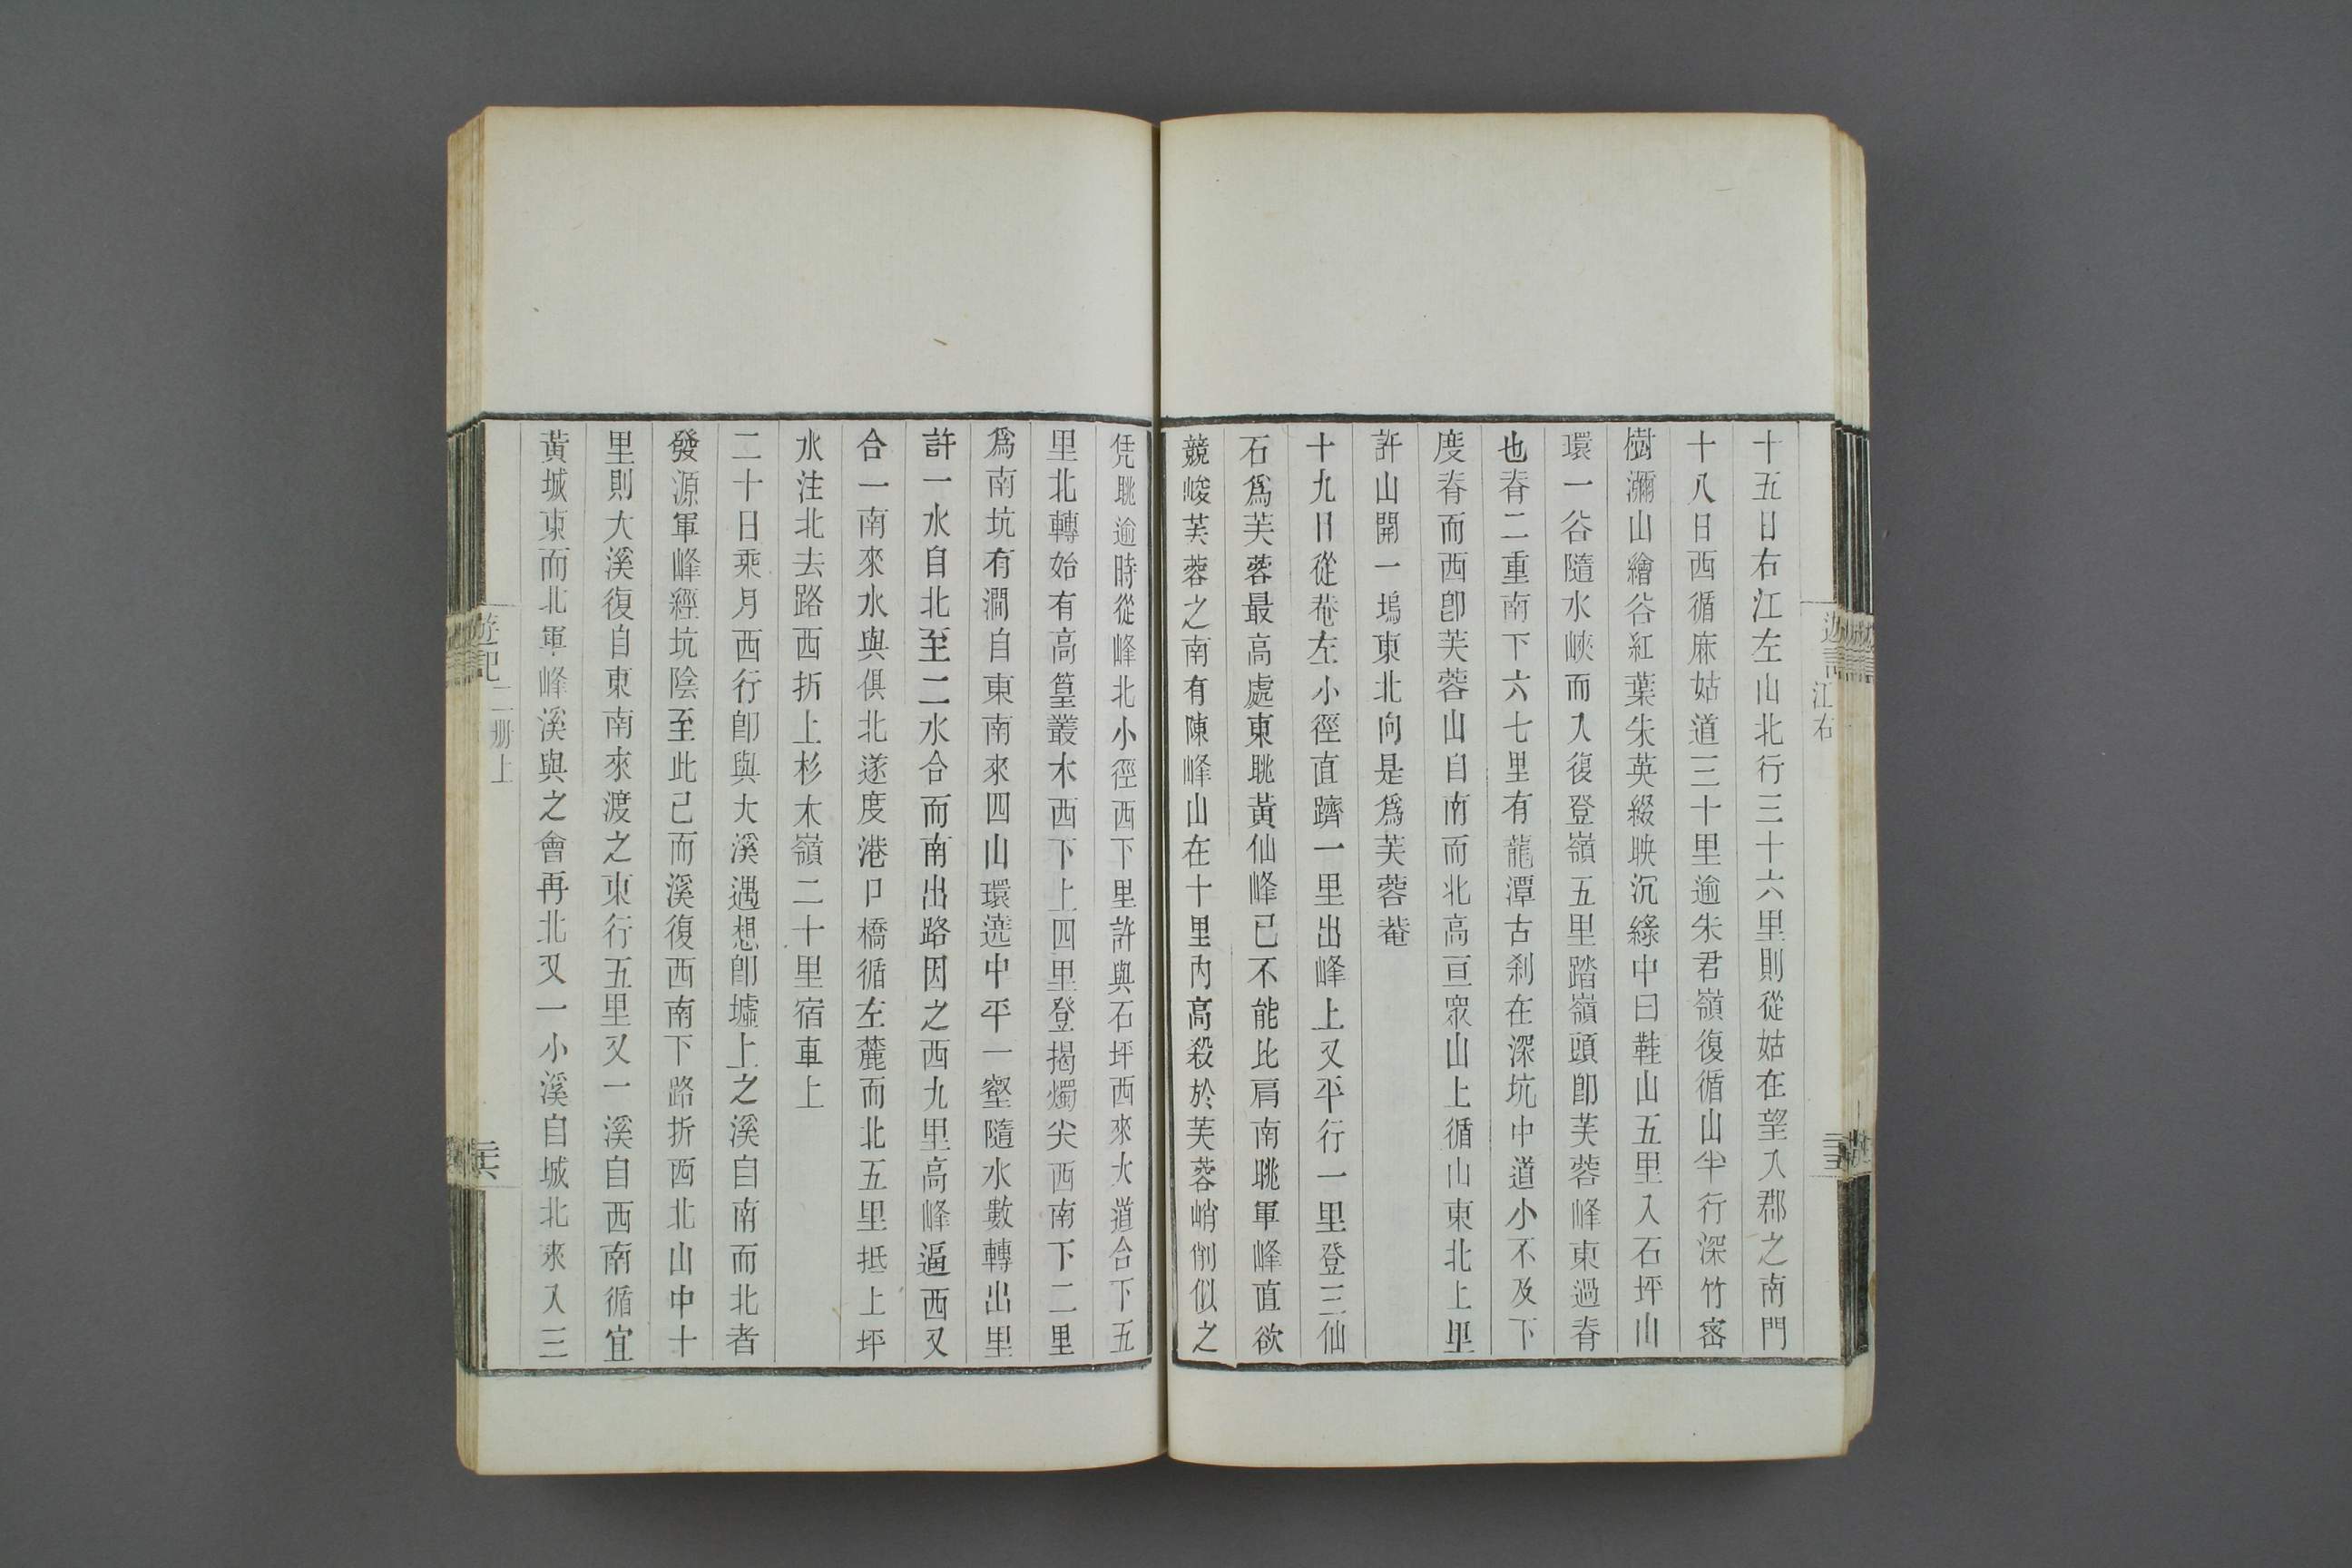 十五日右江左山北行三十六里則從姑在望入郡之南門
十八日西循麻姑道三十里逾朱君嶺復循山半行深竹密
樹瀰山繪谷紅葉朱英綴映沉綠中曰鞋山五里入石坪山
環一谷隨水峽而入復登嶺五里踏嶺頭卽芙蓉峰東過脊
也脊二重南下六七里有龍潭古刹在深坑中道小不及下
度脊而西卽芙蓉山自南而北高亘眾山上循山東北上里
許山開一塢東北向是爲芙蓉菴
十九日從菴左小徑直躋一里出峰上又平行一里登三仙
石爲芙蓉最高處東眺黃仙峰已不能比肩南眺軍峰直欲
競峻芙蓉之南有陳峰山在十里內高殺於芙蓉峭削似之
凭眺逾時從峰北小徑西下里許與石坪西來大道合下五
里北轉始有高篁叢木西下上四里登揭燭尖西南下二里
爲南坑有澗自東南來四山環遶中平一壑隨水數轉出里
許一水自北至二水合而南出路因之西九里高峰逼西又
合一南來水與俱北遂度港卩橋循左麓而北五里抵上坪
水注北去路西折上杉木嶺二十里宿車上
二十日乘月西行卽與大溪遇想卽墟上之溪自南而北者
發源軍峰經坑陰至此已而溪復西南下路折西北山中十
里則大溪復自東南來渡之東行五里又一溪自西南循宜
黃城東而北軍峰溪與之會再北又一小溪自城北來入三
遊記
江右
遊記
二册上